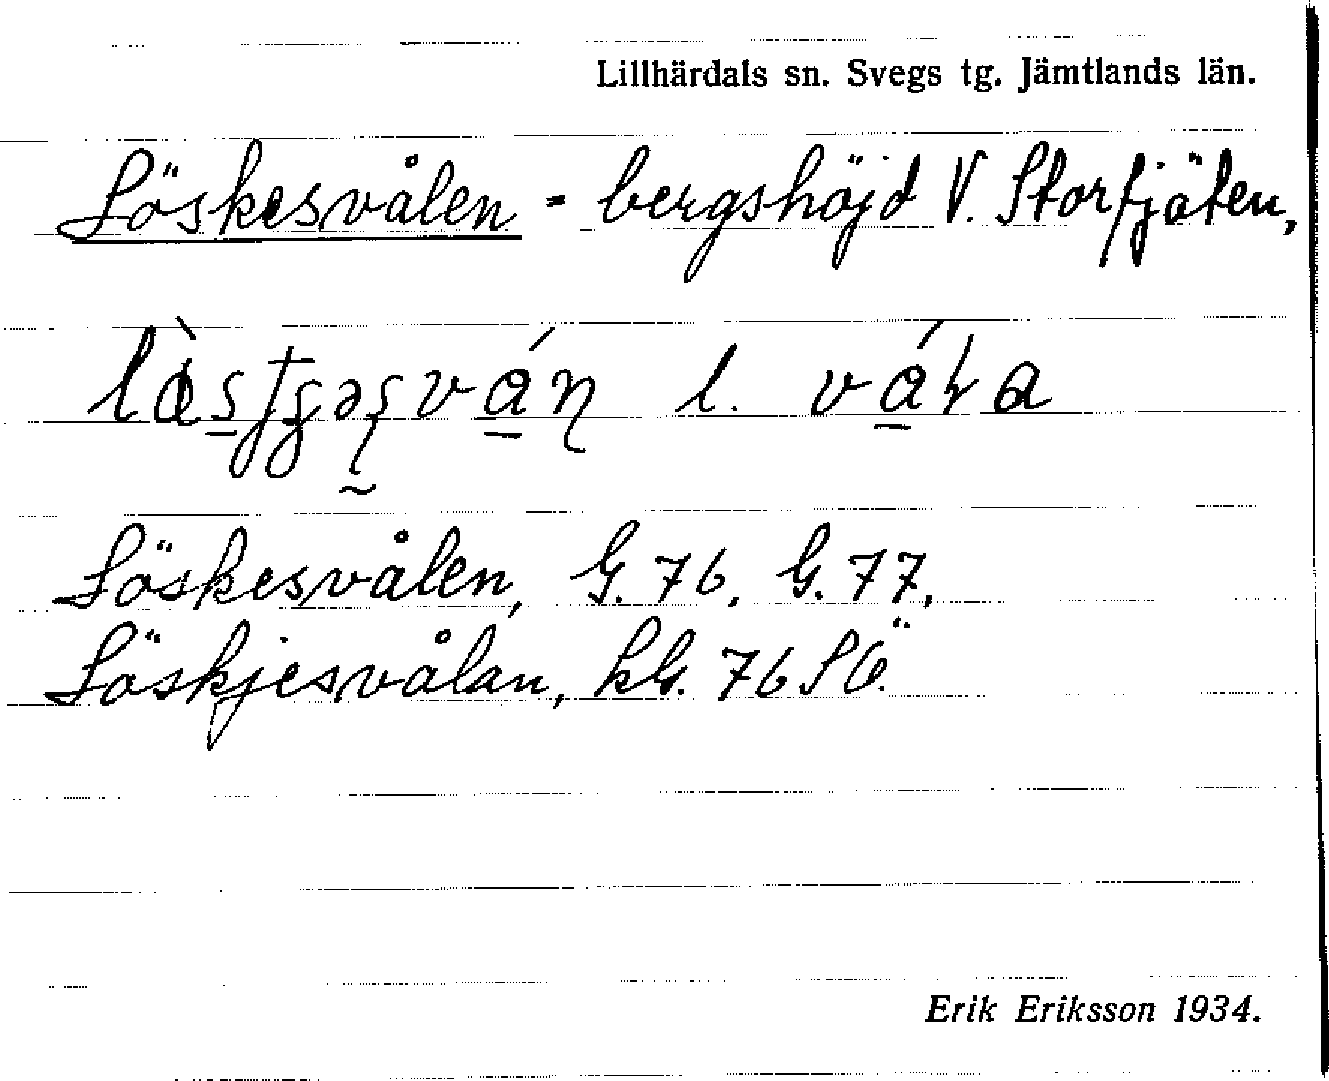 Lillhärdals sn. Svegs tg. Jämtlands län.
Löskesvålen - bergshöjd V. Storfjäten,
l. 
Löskesvålen, G. 76, G. 77,
Löskjesvålan, kG. 76 SÖ.
Erik Eriksson 1934.